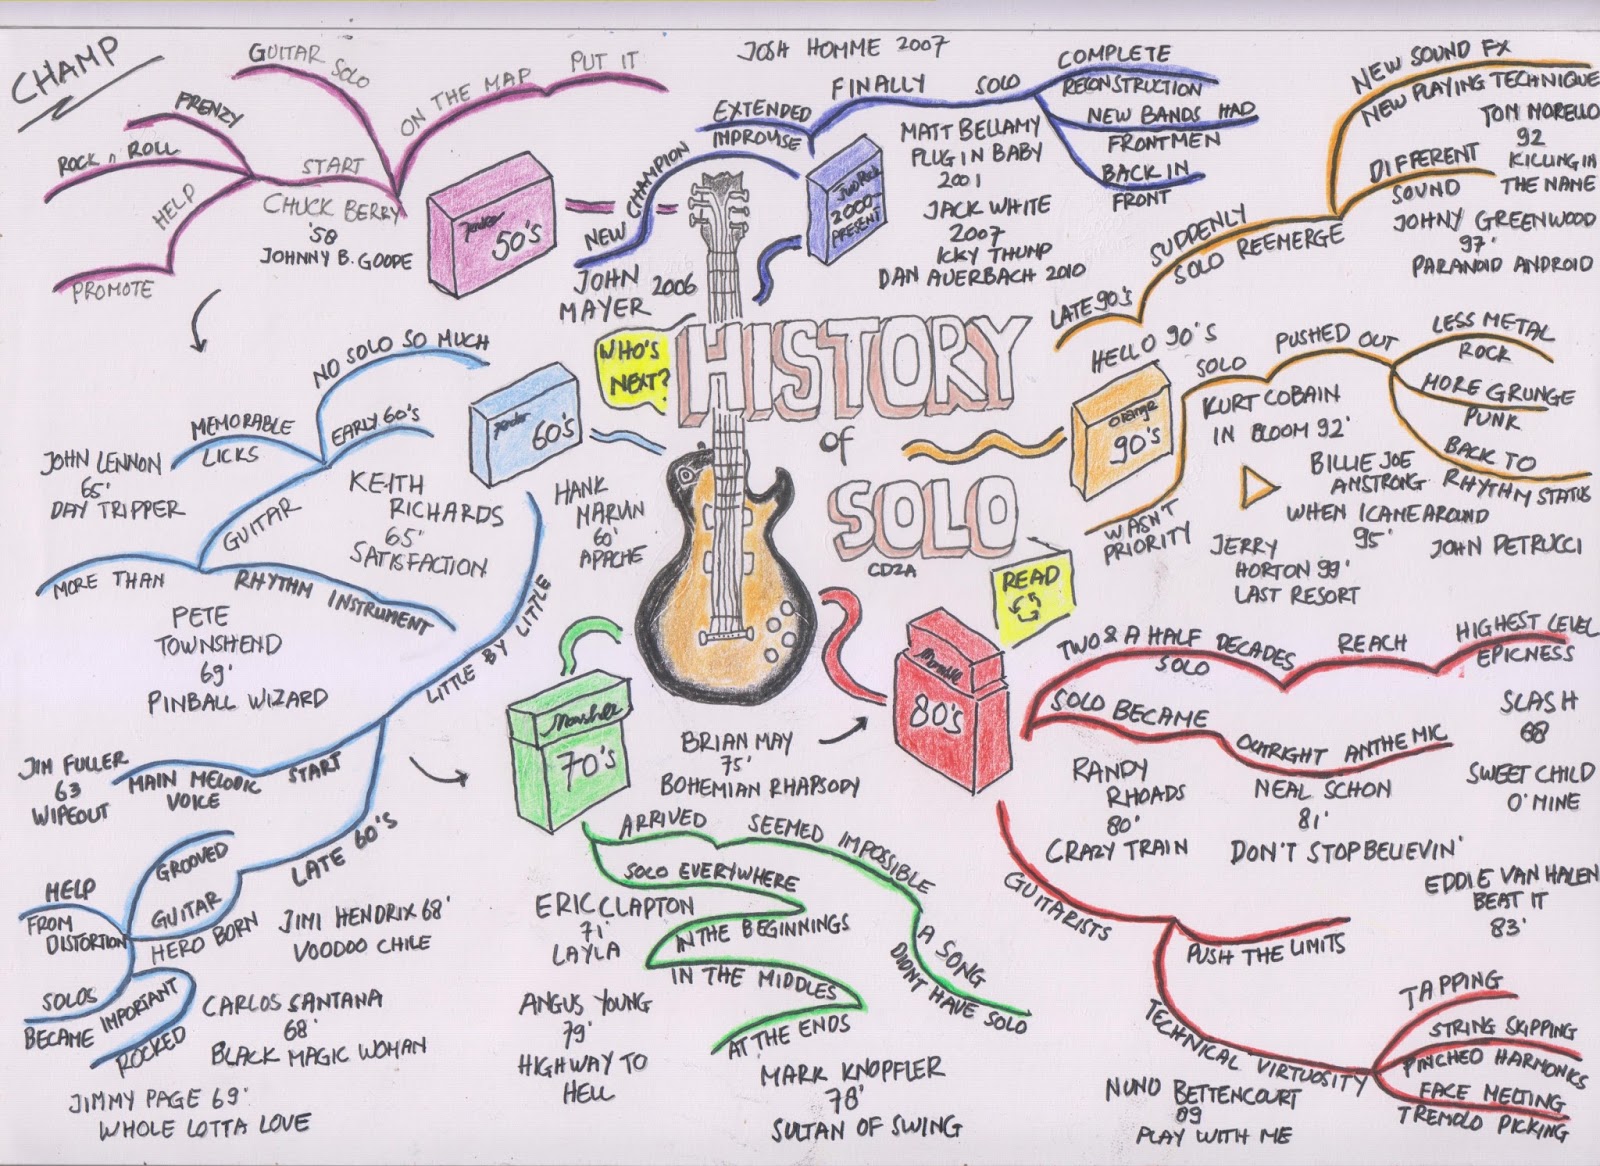 CHAMP
GUITAR SOLO
ON THE MAP
PUT IT
FRENZY
ROCK n ROLL
START
HELP
PROMOTE
CHUCK BERRY
'58
JOHNNY B. GOODE
50'S
JOSH HOMME 2007
NEW CHAMPION
EXTENDED
IMPROVISE
FINALLY
SOLO
COMPLETE
RECONSTRUCTION
NEW BANDS HAD
FRONTMEN
BACK IN
FRONT
JOHN
MAYER 2006
2000-
PRESENT
MATT BELLAMY
PLUG IN BABY
2001
JACK WHITE
2007
ICKY THUMP
DAN AUERBACH 2010
NEW SOUND FX
NEW PLAYING TECHNIQUE
TOM MORELLO
92
KILLING IN
THE NAME
DIFFERENT
SOUND
SUDDENLY
SOLO REEMERGE
LATE 90'S
JOHNY GREENWOOD
97'
PARANOID ANDROID
HELLO 90'S
SOLO
PUSHED OUT
LESS METAL
ROCK
MORE GRUNGE
PUNK
BACK TO
RHYTHM STATUS
WASN'T
PRIORITY
orange
90'S
KURT COBAIN
IN BLOOM 92'
BILLIE JOE
AMSTRONG
WHEN I CAME AROUND
95'
JERRY
HORTON 99'
LAST RESORT
JOHN PETRUCCI
WHO'S
NEXT?
HISTORY
of
SOLO
CDZA
READ
NO SOLO SO MUCH
EARLY 60'S
MEMORABLE
LICKS
GUITAR
MORE THAN
RHYTHM INSTRUMENT
JOHN LENNON
65'
DAY TRIPPER
KEITH
RICHARDS
65'
SATISFACTION
60'S
HANK
MARVIN
60'
APACHE
PETE
TOWNSHEND
69'
PINBALL WIZARD
LITTLE BY LITTLE
START
MAIN MELODIC
VOICE
JIM FULLER
63
WIPEOUT
LATE 60'S
GROOVED
GUITAR
HERO BORN
HELP
FROM
DISTORTION
SOLOS
BECAME IMPORTANT
ROCKED
JIMI HENDRIX 68'
VOODOO CHILE
CARLOS SANTANA
68'
BLACK MAGIC WOMAN
JIMMY PAGE 69'
WHOLE LOTTA LOVE
70'S
BRIAN MAY
75'
BOHEMIAN RHAPSODY
ARRIVED
SEEMED IMPOSSIBLE
A SONG
DIDN'T HAVE SOLO
SOLO EVERYWHERE
IN THE BEGINNINGS
IN THE MIDDLES
AT THE ENDS
ERIC CLAPTON
71'
LAYLA
ANGUS YOUNG
79'
HIGHWAY TO
HELL
MARK KNOPFLER
78'
SULTAN OF SWING
80'S
TWO & A HALF DECADES
SOLO
REACH
HIGHEST LEVEL
EPICNESS
SOLO BECAME
OUTRIGHT ANTHEMIC
RANDY
RHOADS
80'
CRAZY TRAIN
NEAL SCHON
81'
DON'T STOP BELIEVIN'
SLASH
88
SWEET CHILD
O' MINE
EDDIE VAN HALEN
BEAT IT
83'
GUITARISTS
PUSH THE LIMITS
TECHNICAL VIRTUOSITY
TAPPING
STRING SKIPPING
PINCHED HARMONICS
FACE MELTING
TREMOLO PICKING
NUNO BETTENCOURT
89
PLAY WITH ME